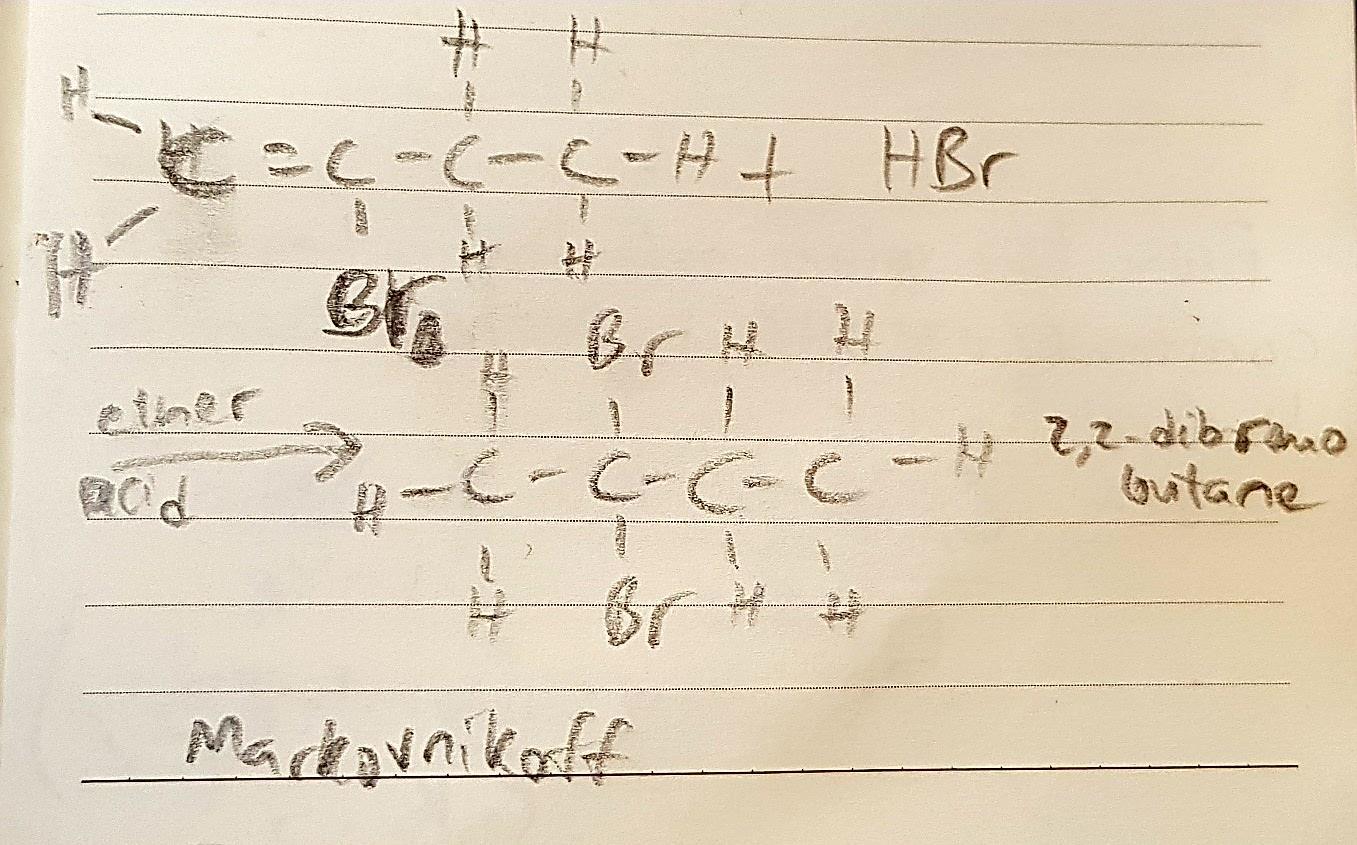 H H
H
C = C - C - C - H + HBr
H
H H
Br
Br H H
H
ether
H - C - C - C - C - H 2,2-dibromo
acid butane
H Br H H
Markovnikoff